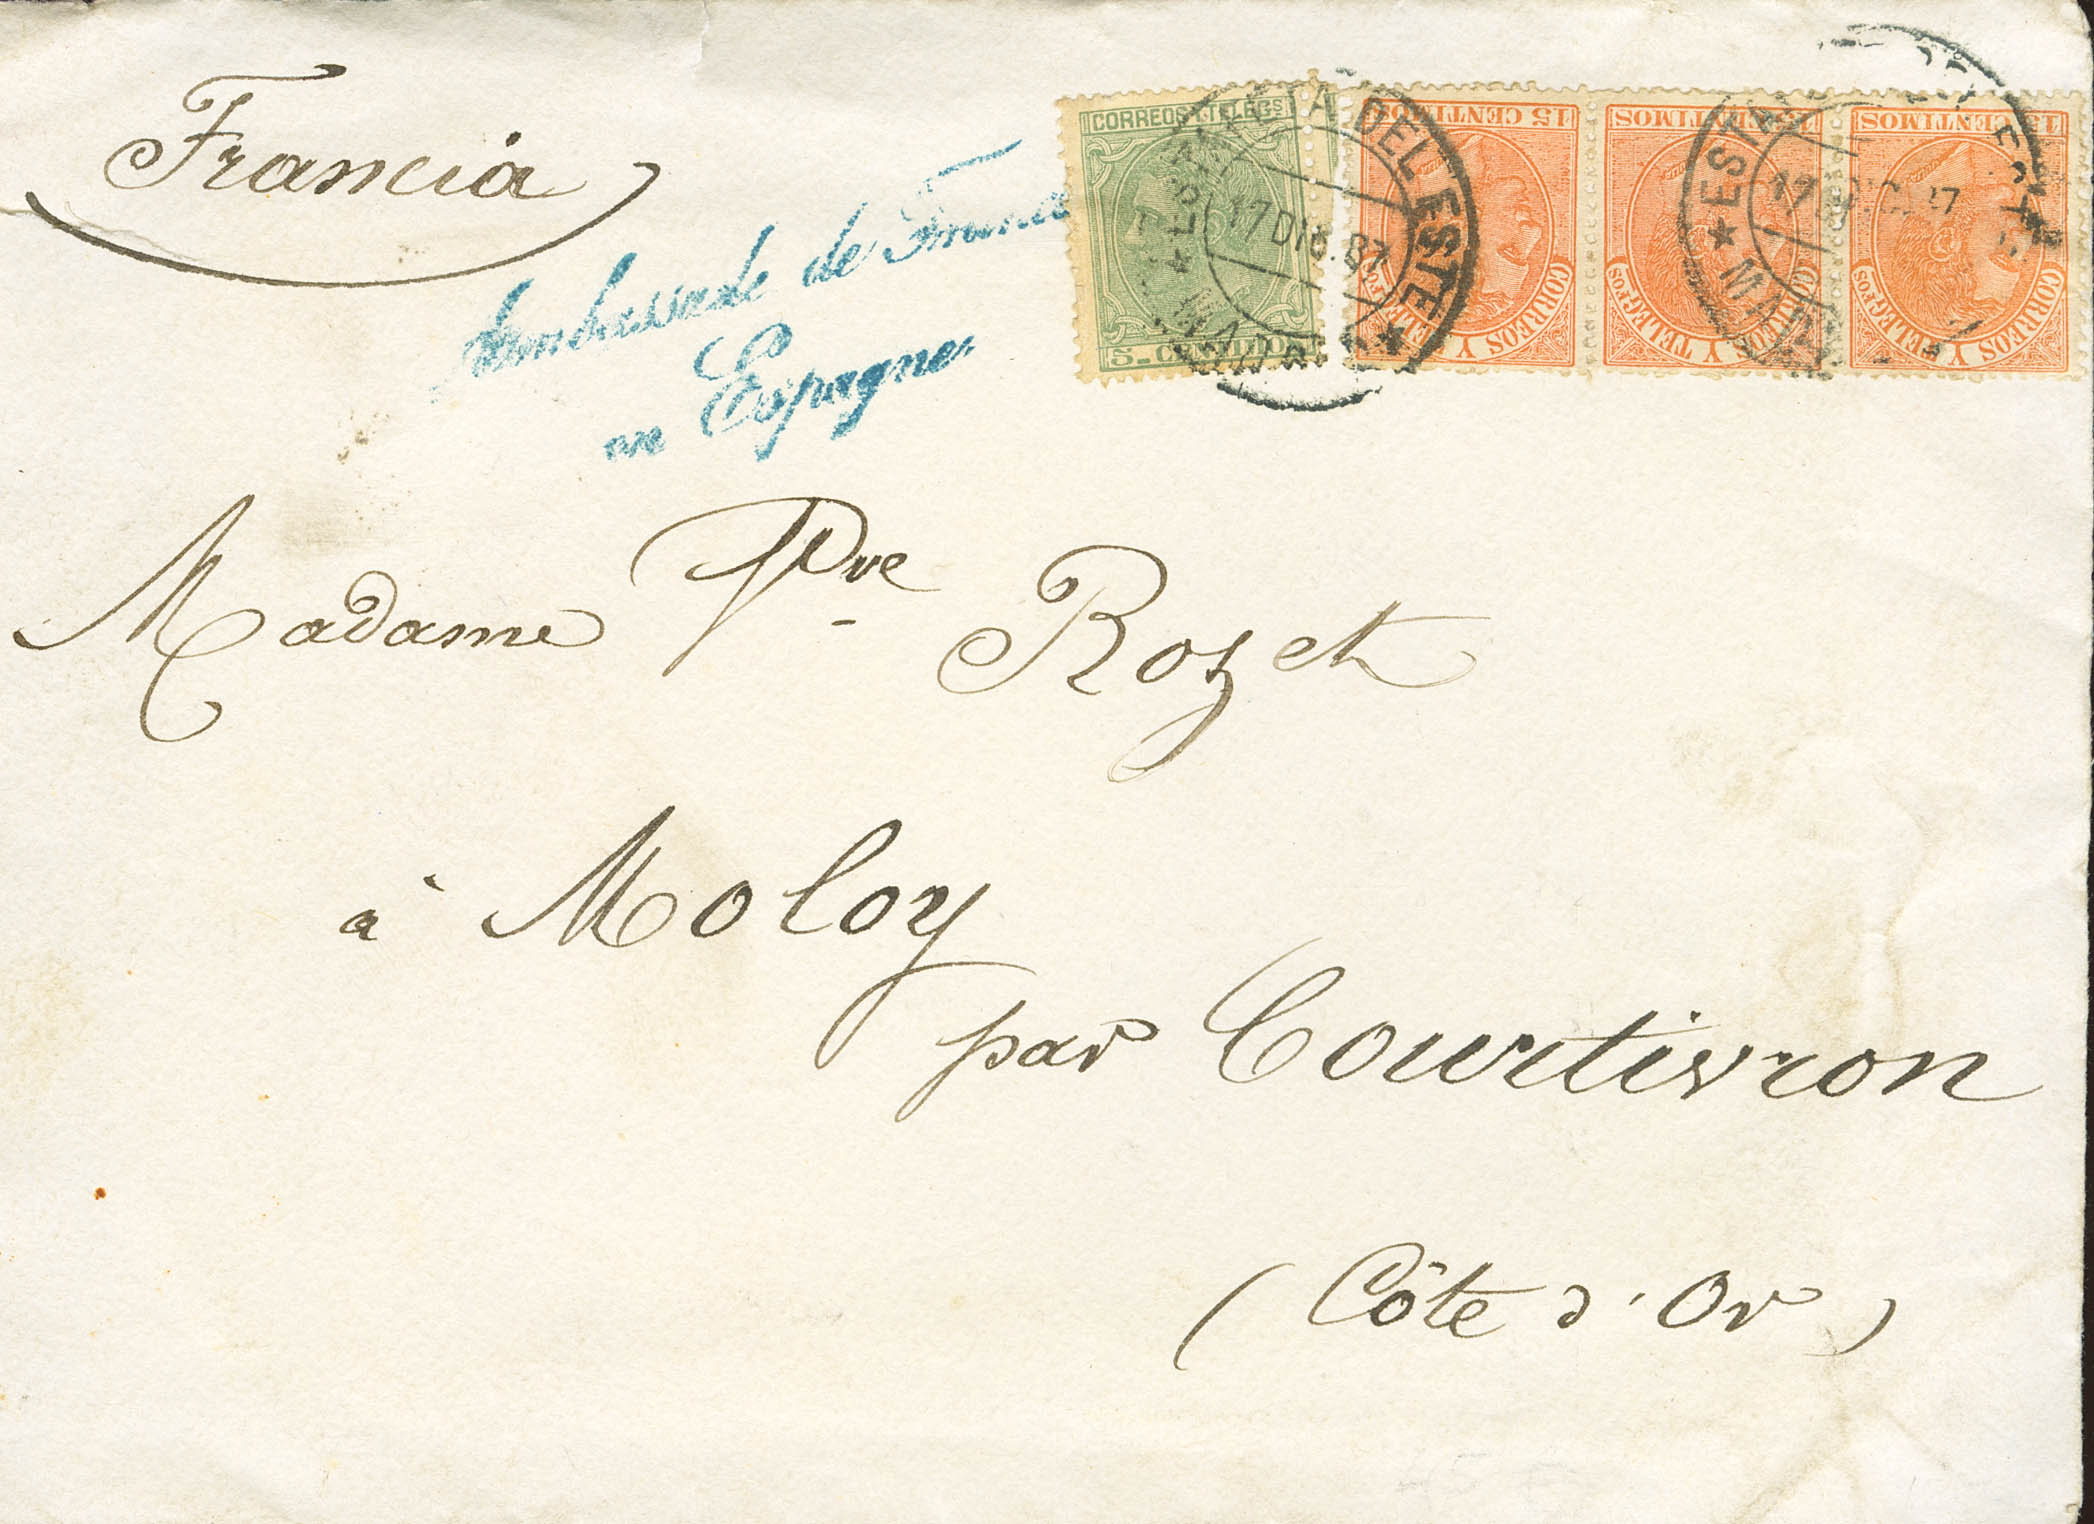 Francia
Ambassade de France
en Espagne
CORREOS Y TELEGS
5 - CENTIMO
15 CENTIMOS
CORREOS Y TELEGFOS
15 CENTIMOS
CORREOS Y TELEGFOS
15 CENTIMOS
CORREOS Y TELEGFOS
ESTAFETA DEL ESTE
17 DIC 87
MADRID
ESTAFETA DEL ESTE
17 DIC 87
Madame Vve Rozet
à Moloy
par Courtivron
(Côte d'Or)